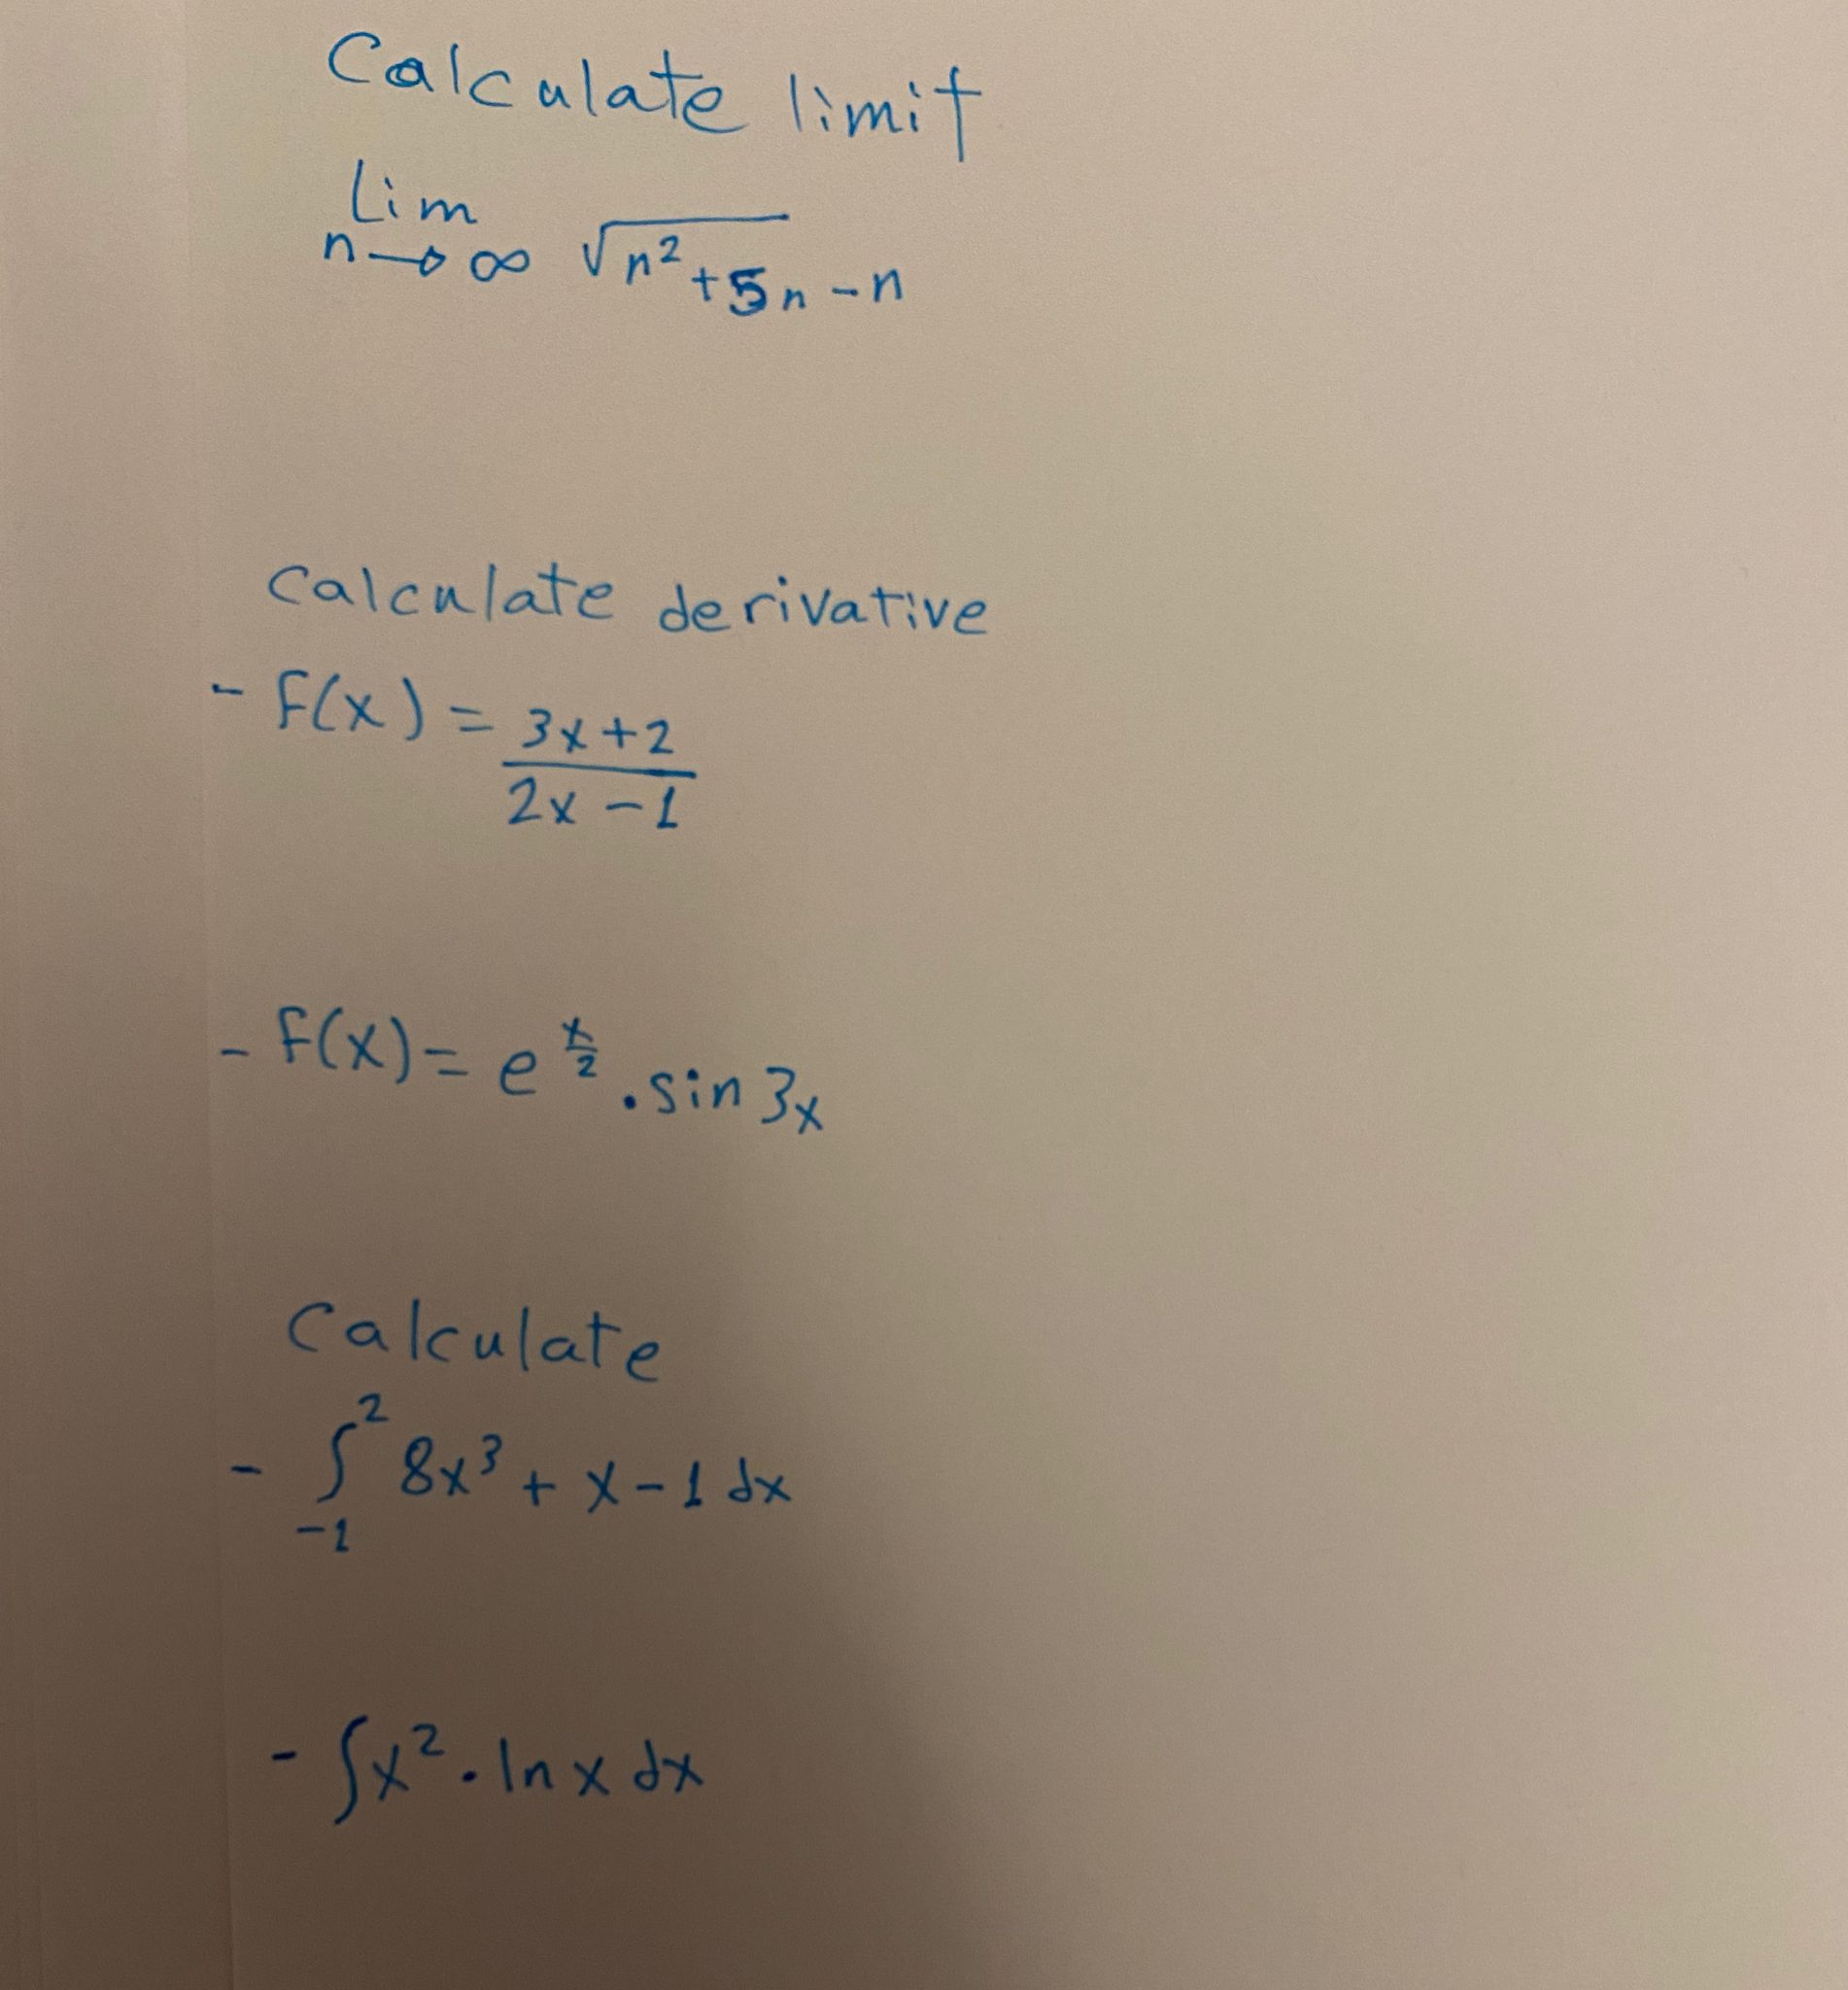 Calculate limit
Lim n→∞ √(n²+5n) -n
Calculate derivative
- F(x) = (3x+2)/(2x-1)
- F(x) = e^(x/2) . sin 3x
Calculate
- ∫_{-1}^{2} 8x³ + x - 1 dx
- ∫x² . ln x dx